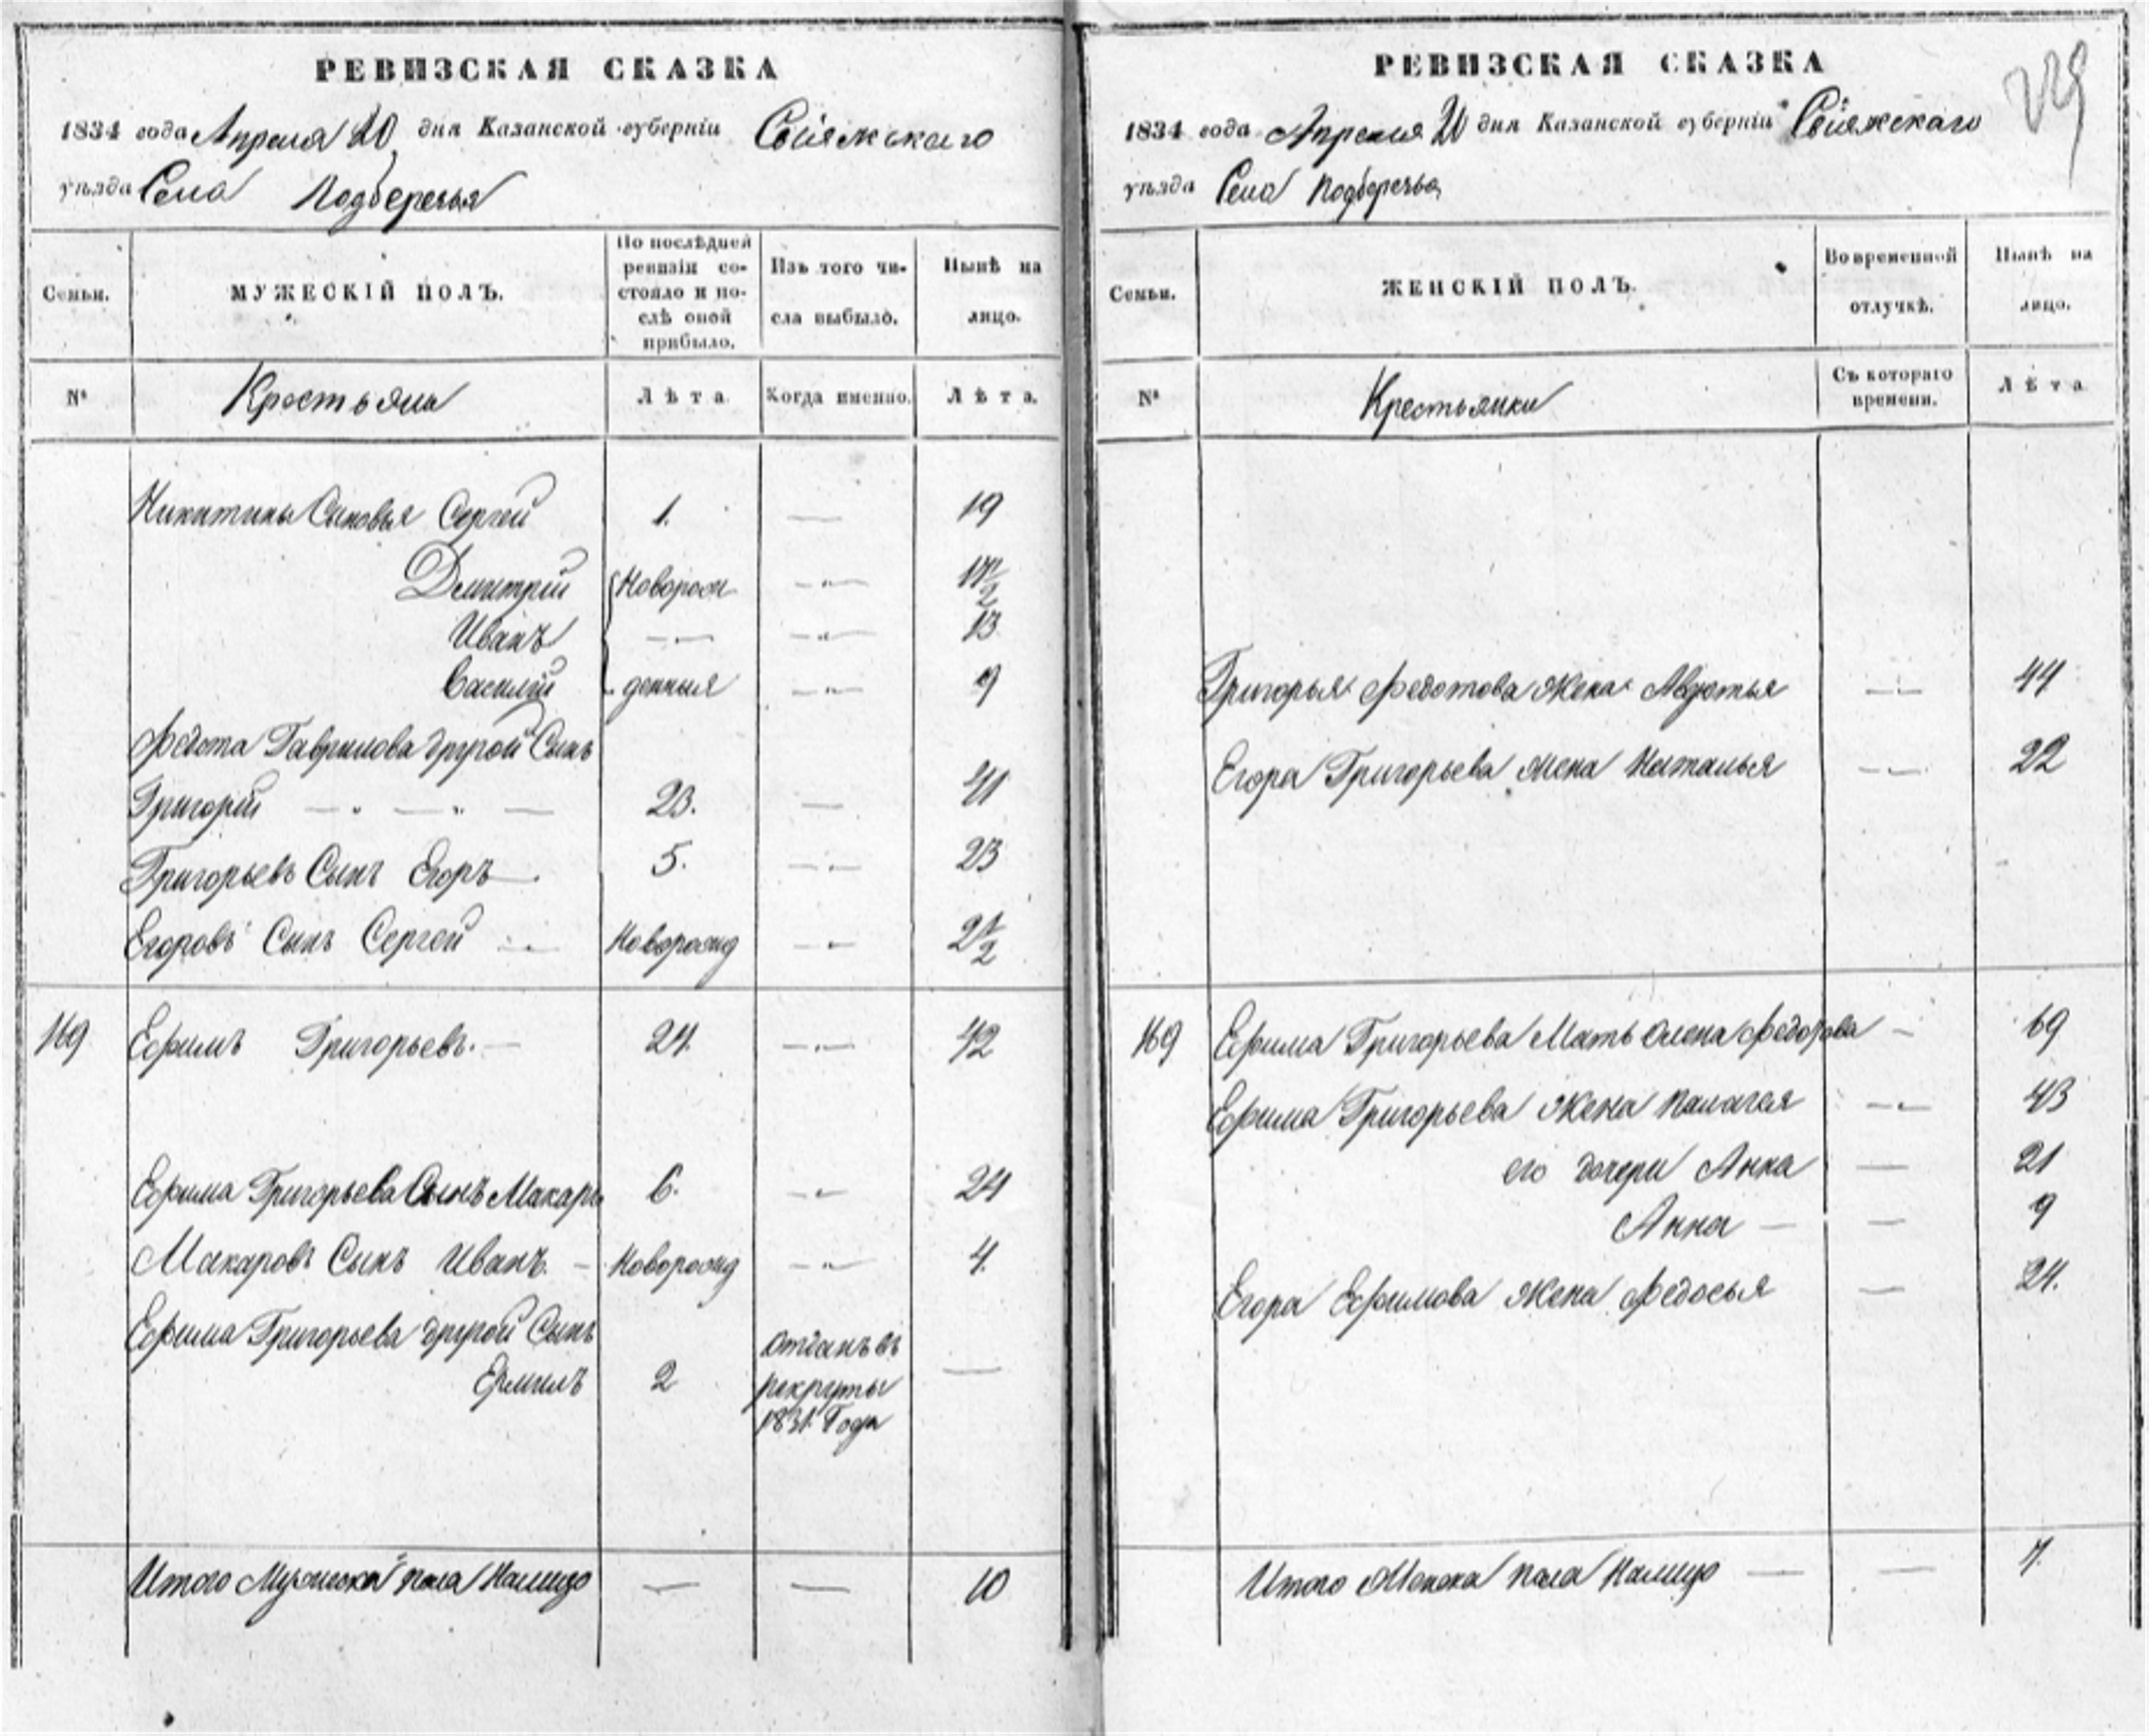 РЕВИЗСКАЯ СКАЗКА
1834 года Апреля 20 дня Казанской губерніи Свіяжскаго
уѣзда Села Подберезья
Семьи.
МУЖЕСКІЙ ПОЛЪ.
По послѣдней
ревизіи со-
стояло и по-
слѣ оной
прибыло.
Изъ того чи-
сла выбыло.
Нынѣ на
лицо.
№
Крестьяна
Лѣта
Когда именно.
Лѣта.
Никитины Сыновья Сергей 1. — 19
Дмитрій Новорож — 17 1/2
Иванъ — — 13
Василій денныя — 9
Федота Гаврилова другой Сынъ
Григорій — 23. — 41
Григорьевъ Сынъ Егоръ 5. — 23
Егоровъ Сынъ Сергей Новорожд — 2 1/2
169 Ефимъ Григорьевъ. — 24. — 42
Ефима Григорьева Сынъ Макаръ 6. — 24
Макаровъ Сынъ Иванъ. — Новорожд — 4.
Ефима Григорьева другой Сынъ
Ермилъ 2 отданъ въ —
рекруты
1831. Года
Итого Мужеска пола Налицо — — 10
РЕВИЗСКАЯ СКАЗКА
1834 года Апреля 20 дня Казанской губерніи Свіяжскаго
уѣзда Села Подберезья
Семьи.
ЖЕНСКІЙ ПОЛЪ.
Во временной
отлучкѣ.
Нынѣ на
лицо.
№
Крестьянки
Съ котораго
времени.
Лѣта
Григорья Федотова Жена Авдотья — 44
Егора Григорьева жена Наталья — 22
169 Ефима Григорьева Мать Олена Федорова — 69
Ефима Григорьева Жена Палагея — 43
его дочери Анна — 21
Анна — — 9
Егора Ефимова Жена Федосья — 24.
Итого Женска пола Налицо — — 7